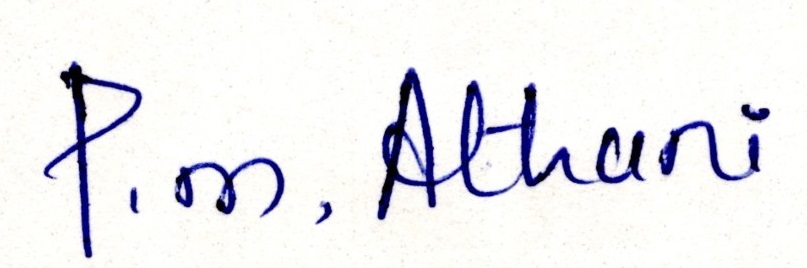 P. m. Athani